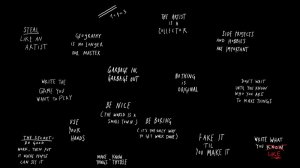 STEAL
LIKE AN
ARTIST
GEOGRAPHY
IS NO LONGER
OUR MASTER
THE ARTIST
IS A
COLLECTOR
SIDE PROJECTS
AND HOBBIES
ARE IMPORTANT
WRITE THE
GAME YOU
WANT TO PLAY
GARBAGE IN,
GARBAGE OUT
NOTHING
IS
ORIGINAL
DON'T WAIT
UNTIL YOU KNOW
WHO YOU ARE
TO MAKE THINGS
BE NICE
(THE WORLD IS A
SMALL TOWN.)
USE
YOUR
HANDS
BE BORING
(IT'S THE ONLY WAY
TO GET WORK DONE)
THE SECRET:
DO GOOD
WORK, THEN PUT
IT WHERE PEOPLE
CAN SEE IT
MAKE
THINGS
KNOW
THYSELF
FAKE IT
'TIL
YOU MAKE IT
WRITE WHAT
YOU KNOW
LIKE